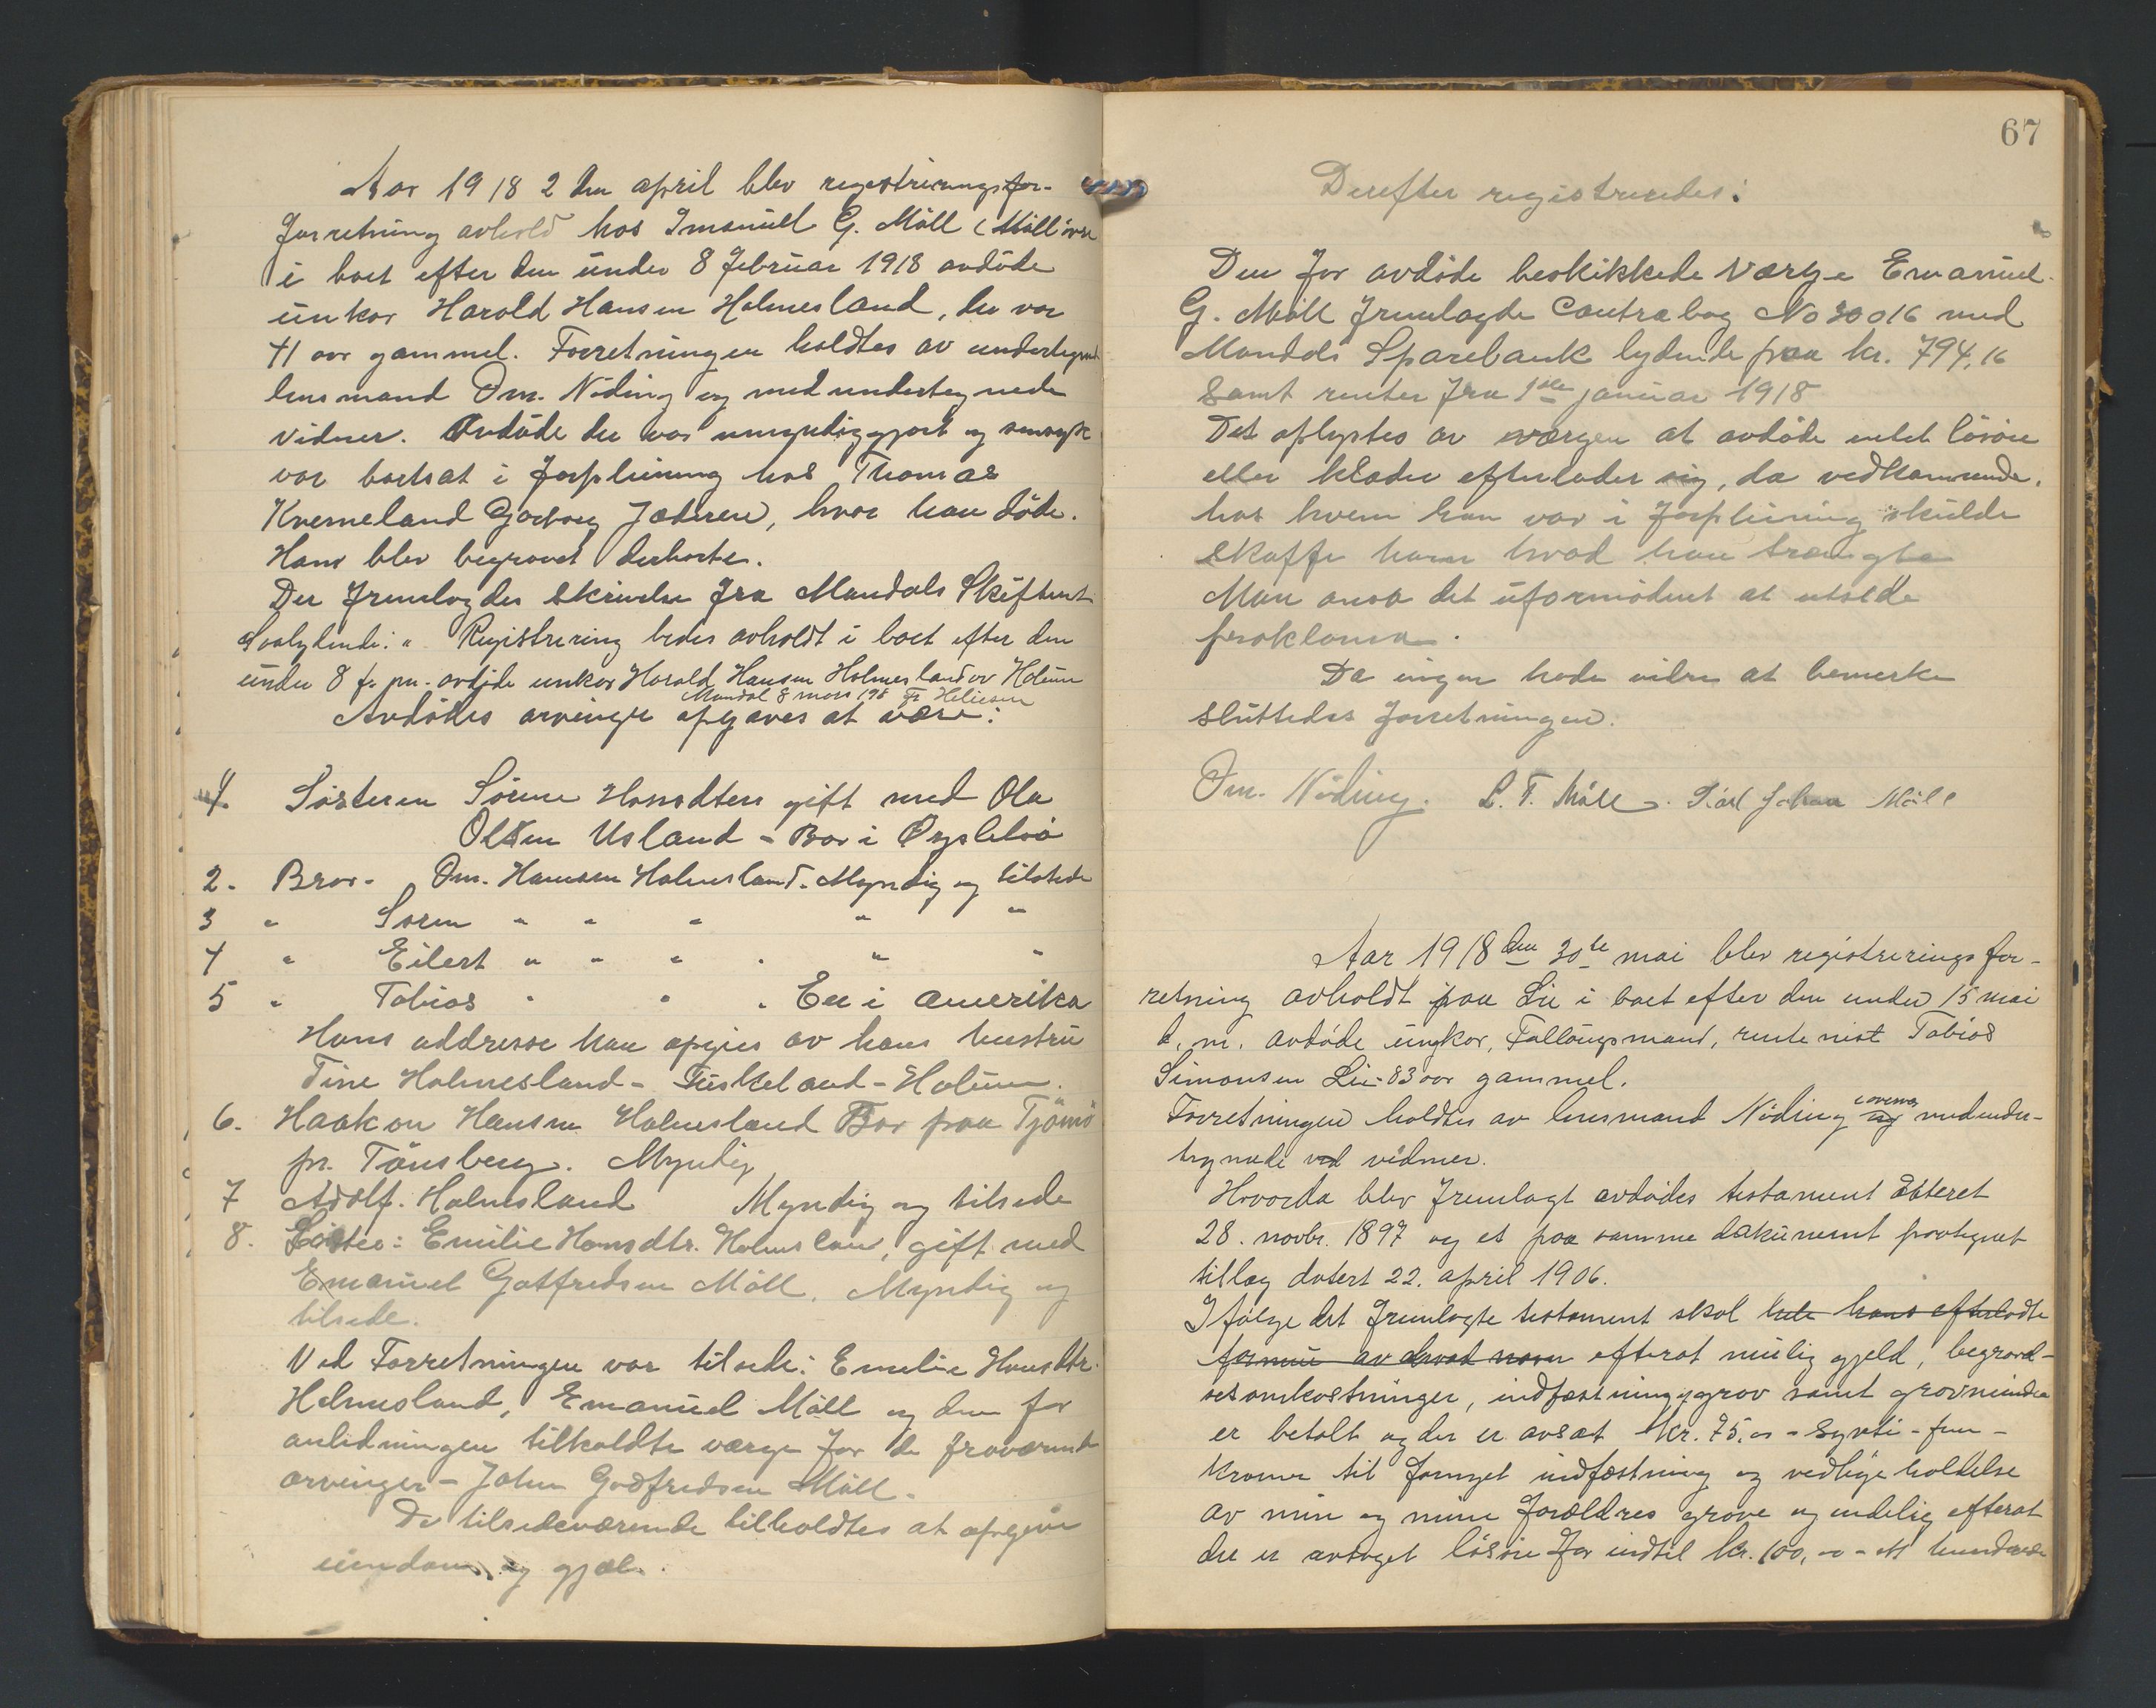 Aar 1918 2 den april blev registreringsfor-
forretning avhold hos Imanuel G. Möll (Möll övre
i boet efter den under 8 Februar 1918 avdöde
unkar Harald Hansen Holmesland, der var
41 aar gammel. Forretningen holdtes av undertegned
lensmand Om. Nöding og med undertegnede
vidner. Avdöde der var umyndiggjort og sinsyk
var bortsat i forpleining hos Thomas
Kverneland Gjorborg Jæderen, hvor han döde.
Hans blev begravet derborte.
Der fremlagdes skrivelse fra Mandals Skifteret
saalydende: " Registrering bedes avholdt i boet efter den
under 8 f. m. avdöde unkar Harald Hansen Holmesland av Holum
Mandal 8 mars 198 Fr Heliesen
Avdödes arvinger opgaves at være:
1. Sösteren Sörine Hansdtter gift med Ola
Olsen Usland - Bor i Öyslebö
2. Bror - Om. Hansen Holmesland. Myndig og tilstede
3 " Sören " " " " "
4 " Eilert " " " " " "
5 " Tobias " " " Er i Amerika
Hans addresse kan opgies av hans hustru
Tine Holmesland - Fuskeland - Holum.
6. Haakon Hansen Holmesland Bor paa Tjömö
pr. Tönsberg. Myndig
7 Adolf. Holmesland Myndig og tilsede
8. Söster: Emilie Hansdtr. Holmslan, gift med
Emanuel Gotfredsen Möll. Myndig og
tilsede.
Ved Forretningen var tilsede: Emilie Hansdtr.
Holmesland, Emanuel Möll og den for
anledningen tilkaldte værge for de fraværende
arvinger - Johan Godfredsen Möll.
De tilsedeværende tilholdtes at opgive
eiendom og gjæl.
67
Derefter registreredes:
Den for avdöde beskikkede værge Emanuel
G. Möll fremlagde Contrabog No 30016 med
Mandals Sparebank lydende paa kr. 794,16
samt renter fra 1ste januar 1918
Det oplystes av værgen at avdöde intet lösöre
eller klæder efterlader sig, da vedkommende,
hos hvem han var i forpleining skulde
skaffe ham hvad han trængte
Man ansa det uformödent at utstede
proklama.
Da ingen hade videre at bemerke
sluttedes forretningen.
Om. Nöding. L. T. Möll. Karl Johan Möll
Aar 1918 den 30te mai blev registreringsfor-
retning avholdt paa Lie i boet efter den under 15 mai
d. m. avdöde ungkar, Fattigmand, rentenist Tobias
Simonsen Lie - 83 aar gammel.
Forretningen holdtes av lensmand Nöding og medunder-
tegnede vidner.
Hvorda blev fremlagt avdödes testament datteret
28. novbr. 1897 og et paa samme dokument paategnet
tillæg datert 22. april 1906.
Ifölge det fremlagte testament skal hele hans efterladte
formue av hvad navn efterat mulig gjeld, begravel-
sesomkostninger, indfæstning av grav samt gravminde
er betalt og der er avsat kr. 75.00 - sytti - fem -
kroner til fornyet indfæstning og vedligeholdelse
av min og mine forældres grave og endelig efterat
der er avtaget lösöre for indtil kr. 100,00 - et hundrede